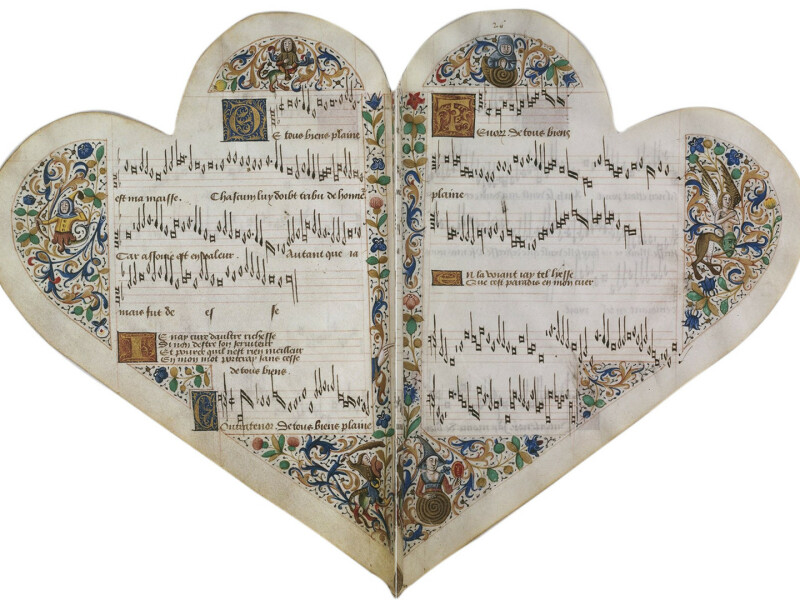 De tous biens plaine
est ma maisse. Chascun luy doibt tribu de honne
Car assouie est en valeur. Autant que ia
mais fut de es se
Ie nay cure daultre richesse
Si non destre son serviteur
Et pource quil nest rien meilleur
En mon mot porteray sans cesse
de tous biens
Contratenor De tous biens plaine
20
Tenor De tous biens
plaine
En la voiant iay tel liesse
Que cest paradis en mon cuer